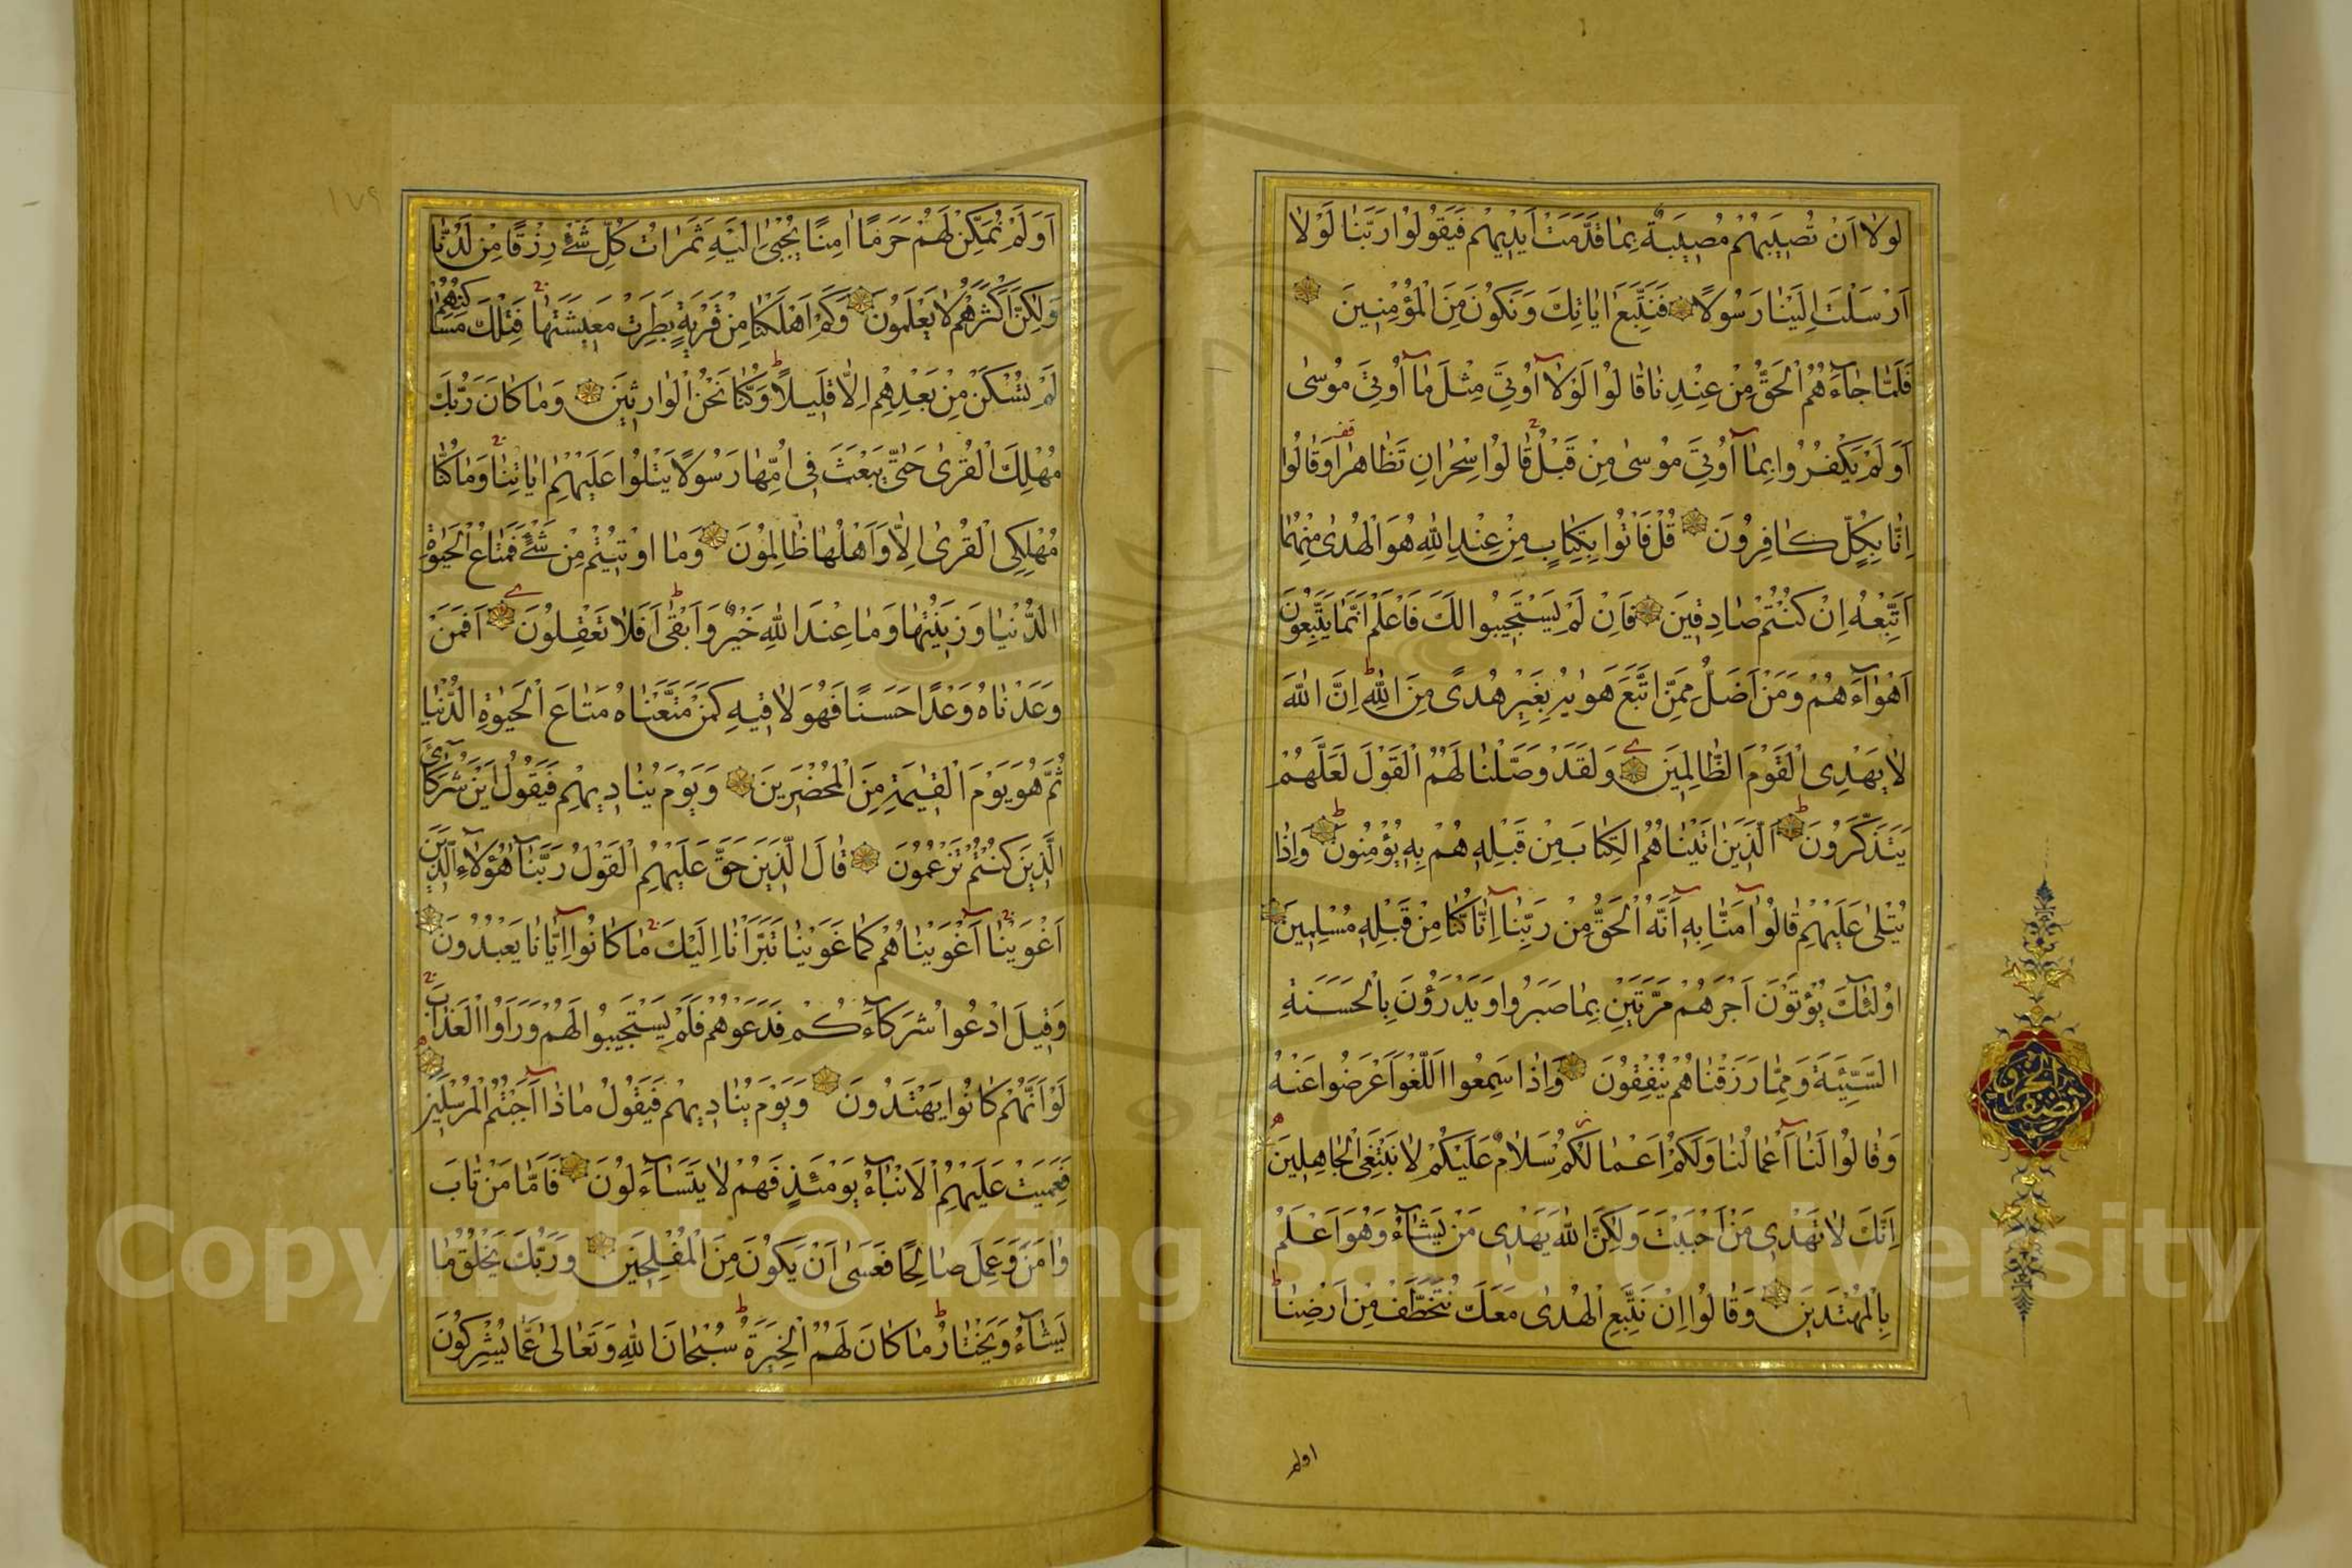 لَوْلَا اَنْ تُصِيبَهُمْ مُصِيبَةٌ بِمَا قَدَّمَتْ اَيْدِيهِمْ فَيَقُولُوا رَبَّنَا لَوْلَا
اَرْسَلْتَ اِلَيْنَا رَسُولًا فَنَتَّبِعَ اٰيَاتِكَ وَنَكُونَ مِنَ الْمُؤْمِنِينَ
فَلَمَّا جَآءَهُمُ الْحَقُّ مِنْ عِنْدِنَا قَالُوا لَوْلَآ اُوتِيَ مِثْلَ مَآ اُوتِيَ مُوسٰى
اَوَلَمْ يَكْفُرُوا بِمَآ اُوتِيَ مُوسٰى مِنْ قَبْلُ قَالُوا سِحْرَانِ تَظَاهَرَا وَقَالُوا
اِنَّا بِكُلٍّ كَافِرُونَ قُلْ فَاْتُوا بِكِتَابٍ مِنْ عِنْدِ اللّٰهِ هُوَ اَهْدٰى مِنْهُمَا
اَتَّبِعْهُ اِنْ كُنْتُمْ صَادِقِينَ فَاِنْ لَمْ يَسْتَجِيبُوا لَكَ فَاعْلَمْ اَنَّمَا يَتَّبِعُونَ
اَهْوَآءَهُمْ وَمَنْ اَضَلُّ مِمَّنِ اتَّبَعَ هَوٰيهُ بِغَيْرِ هُدًى مِنَ اللّٰهِ اِنَّ اللّٰهَ
لَا يَهْدِى الْقَوْمَ الظَّالِمِينَ وَلَقَدْ وَصَّلْنَا لَهُمُ الْقَوْلَ لَعَلَّهُمْ
يَتَذَكَّرُونَ اَلَّذِينَ اٰتَيْنَاهُمُ الْكِتَابَ مِنْ قَبْلِهِ هُمْ بِهِ يُؤْمِنُونَ وَاِذَا
يُتْلٰى عَلَيْهِمْ قَالُوا اٰمَنَّا بِهِ اِنَّهُ الْحَقُّ مِنْ رَبِّنَا اِنَّا كُنَّا مِنْ قَبْلِهِ مُسْلِمِينَ
اُولٰئِكَ يُؤْتَوْنَ اَجْرَهُمْ مَرَّتَيْنِ بِمَا صَبَرُوا وَيَدْرَؤُنَ بِالْحَسَنَةِ
السَّيِّئَةَ وَمِمَّا رَزَقْنَاهُمْ يُنْفِقُونَ وَاِذَا سَمِعُوا اللَّغْوَ اَعْرَضُوا عَنْهُ
وَقَالُوا لَنَا اَعْمَالُنَا وَلَكُمْ اَعْمَالُكُمْ سَلَامٌ عَلَيْكُمْ لَا نَبْتَغِى الْجَاهِلِينَ
اِنَّكَ لَا تَهْدِى مَنْ اَحْبَبْتَ وَلٰكِنَّ اللّٰهَ يَهْدِى مَنْ يَشَآءُ وَهُوَ اَعْلَمُ
بِالْمُهْتَدِينَ وَقَالُوا اِنْ نَتَّبِعِ الْهُدٰى مَعَكَ نُتَخَطَّفْ مِنْ اَرْضِنَا
اولم
نصف الحزب
١٧٩
اَوَلَمْ نُمَكِّنْ لَهُمْ حَرَمًا اٰمِنًا يُجْبٰى اِلَيْهِ ثَمَرَاتُ كُلِّ شَىْءٍ رِزْقًا مِنْ لَدُنَّا
وَلٰكِنَّ اَكْثَرَهُمْ لَا يَعْلَمُونَ وَكَمْ اَهْلَكْنَا مِنْ قَرْيَةٍ بَطِرَتْ مَعِيشَتَهَا فَتِلْكَ مَسَاكِنُهُمْ
لَمْ تُسْكَنْ مِنْ بَعْدِهِمْ اِلَّا قَلِيلًا وَكُنَّا نَحْنُ الْوَارِثِينَ وَمَا كَانَ رَبُّكَ
مُهْلِكَ الْقُرٰى حَتّٰى يَبْعَثَ فِى اُمِّهَا رَسُولًا يَتْلُوا عَلَيْهِمْ اٰيَاتِنَا وَمَا كُنَّا
مُهْلِكِى الْقُرٰى اِلَّا وَاَهْلُهَا ظَالِمُونَ وَمَا اُوتِيتُمْ مِنْ شَىْءٍ فَمَتَاعُ الْحَيٰوةِ
الدُّنْيَا وَزِينَتُهَا وَمَا عِنْدَ اللّٰهِ خَيْرٌ وَاَبْقٰى اَفَلَا تَعْقِلُونَ اَفَمَنْ
وَعَدْنَاهُ وَعْدًا حَسَنًا فَهُوَ لَاقِيهِ كَمَنْ مَتَّعْنَاهُ مَتَاعَ الْحَيٰوةِ الدُّنْيَا
ثُمَّ هُوَ يَوْمَ الْقِيٰمَةِ مِنَ الْمُحْضَرِينَ وَيَوْمَ يُنَادِيهِمْ فَيَقُولُ اَيْنَ شُرَكَآئِىَ
الَّذِينَ كُنْتُمْ تَزْعُمُونَ قَالَ الَّذِينَ حَقَّ عَلَيْهِمُ الْقَوْلُ رَبَّنَا هٰؤُلَآءِ الَّذِينَ
اَغْوَيْنَا اَغْوَيْنَاهُمْ كَمَا غَوَيْنَا تَبَرَّاْنَا اِلَيْكَ مَا كَانُوا اِيَّانَا يَعْبُدُونَ
وَقِيلَ ادْعُوا شُرَكَآءَكُمْ فَدَعَوْهُمْ فَلَمْ يَسْتَجِيبُوا لَهُمْ وَرَاَوُا الْعَذَابَ
لَوْ اَنَّهُمْ كَانُوا يَهْتَدُونَ وَيَوْمَ يُنَادِيهِمْ فَيَقُولُ مَاذَا اَجَبْتُمُ الْمُرْسَلِينَ
فَعَمِيَتْ عَلَيْهِمُ الْاَنْبَآءُ يَوْمَئِذٍ فَهُمْ لَا يَتَسَآءَلُونَ فَاَمَّا مَنْ تَابَ
وَاٰمَنَ وَعَمِلَ صَالِحًا فَعَسٰى اَنْ يَكُونَ مِنَ الْمُفْلِحِينَ وَرَبُّكَ يَخْلُقُ مَا
يَشَآءُ وَيَخْتَارُ مَا كَانَ لَهُمُ الْخِيَرَةُ سُبْحَانَ اللّٰهِ وَتَعَالٰى عَمَّا يُشْرِكُونَ
Copyright © King Saud University
1957